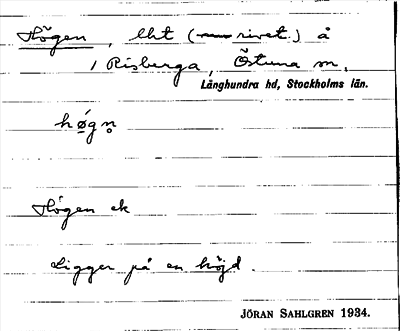 Högen, lht (rivet.) å
1 Risberga, Östuna sn,
Långhundra hd, Stockholms län.
hø̀gn̥
Högen ek
Ligger på en höjd.
JÖRAN SAHLGREN 1934.